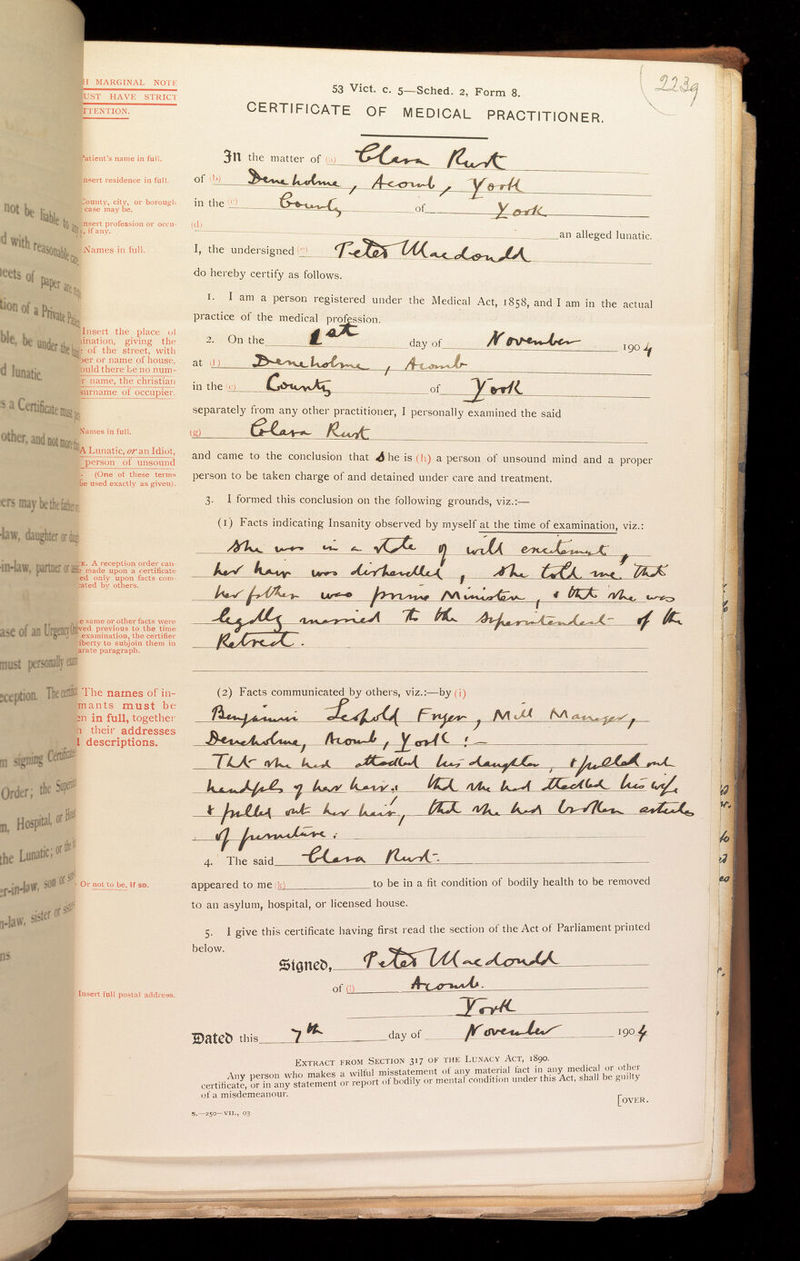 2239
53 Vict. c. 5—Sched. 2, Form 8.
CERTIFICATE OF MEDICAL PRACTITIONER.
In the matter of (a) Clara Rust
of (b) Deneholme, Acomb, York
in the (c) County of York
(d) an alleged lunatic.
I, the undersigned (e) Peter Macdonald
do hereby certify as follows.
1. I am a person registered under the Medical Act, 1858, and I am in the actual
practice of the medical profession.
2. On the day of November 1904
at (f) Deneholme, Acomb
in the (c) County of York
separately from any other practitioner, I personally examined the said
(g) Clara Rust
and came to the conclusion that she is (h) a person of unsound mind and a proper
person to be taken charge of and detained under care and treatment.
3. I formed this conclusion on the following grounds, viz.:—
(1) Facts indicating Insanity observed by myself at the time of examination, viz.:
She was in a state of wild excitement,
her hair was dishevelled, she told me that
her father was prime Minister, & that she was
legally married to the Superintendent of the
Retreat.
(2) Facts communicated by others, viz.:—by (i)
Benjamin Leopold Fryer, Mill Manager,
Deneholme, Acomb, York :—
That she had attacked his daughter, & pulled out
handfuls of her hair, that she had attacked his wife
& pulled out her hair, that she had broken articles
of furniture.
4. The said Clara Rust.
appeared to me (k) to be in a fit condition of bodily health to be removed
to an asylum, hospital, or licensed house.
5. I give this certificate having first read the section of the Act of Parliament printed
below.
Signed, Peter Macdonald
of (l) Acomb.
York
Dated this 7th day of November 1904
EXTRACT FROM SECTION 317 OF THE LUNACY ACT, 1890.
Any person who makes a wilful misstatement of any material fact in any medical or other
certificate, or in any statement or report of bodily or mental condition under this Act, shall be guilty
of a misdemeanour.
[OVER.
S.—250—VII., 03
H MARGINAL NOTE
UST HAVE STRICT
TTENTION.
Patient's name in full.
nsert residence in full.
County, city, or borough
case may be.
nsert profession or occu-
, if any.
Names in full.
Insert the place of
ination, giving the
of the street, with
er or name of house,
ould there be no num-
r name, the christian
surname of occupier.
Names in full.
A Lunatic, or an Idiot,
person of unsound
(One of these terms
be used exactly as given).
A reception order can-
made upon a certificate
ed only upon facts com-
cated by others.
e same or other facts were
ved previous to the time
examination, the certifier
iberty to subjoin them in
arate paragraph.
The names of in-
mants must be
en in full, together
h their addresses
d descriptions.
Or not to be, if so.
Insert full postal address.
not be liable to
d with reasonable
eets of paper
tion of a Private
ble, be under the
d lunatic
s a Certificate must
other, and not more
ers may be the father
law, daughter or
in-law, partner or
ase of an Urgency
must personally
ception. The
m signing
Order; the
n, Hospital, or
the Lunatic; or the
r-in-law, son or
n-law, sister or
ns